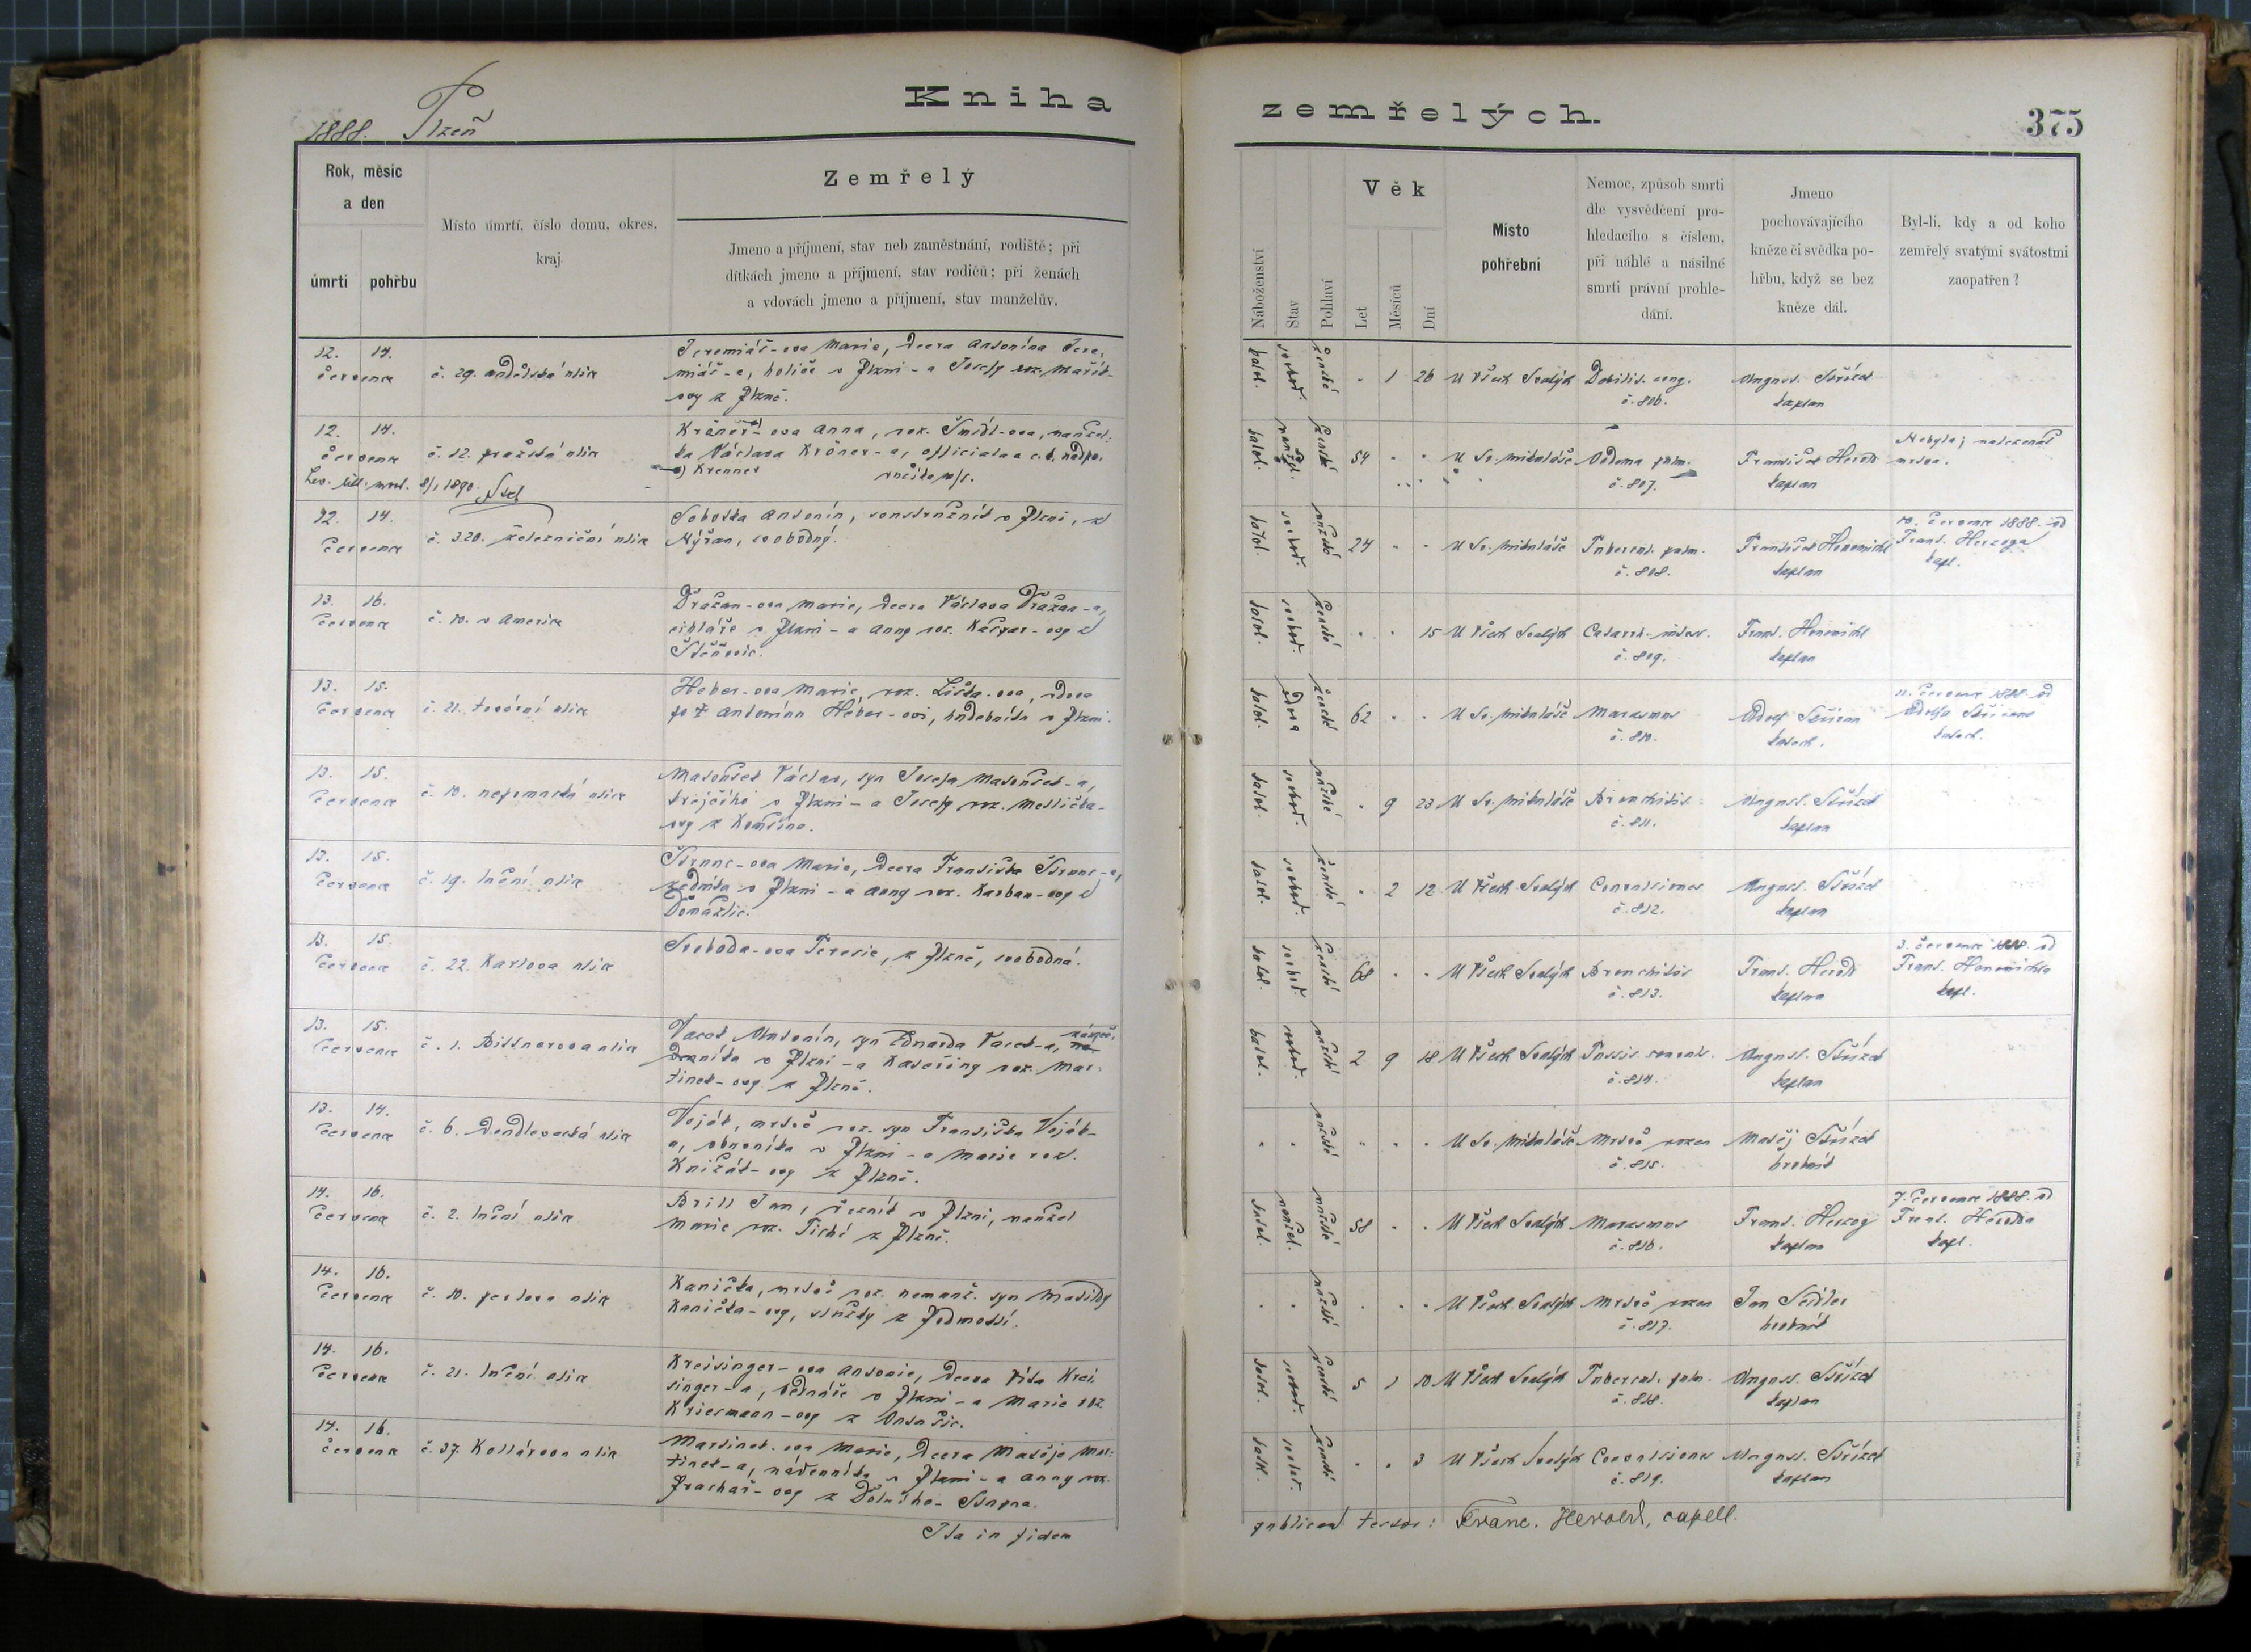 1888. Plzeň
Kniha zemřelých.
375
Rok, měsíc
a den
úmrtí
pohřbu
Místo úmrtí, číslo domu, okres,
kraj.
Zemřelý
Jmeno a příjmení, stav neb zaměstnání, rodiště; při
dítkách jmeno a příjmení, stav rodičů; při ženách
a vdovách jmeno a příjmení, stav manželův.
Náboženství
Stav
Pohlaví
Věk
Let
Měsíců
Dní
Místo
pohřební
Nemoc, způsob smrti
dle vysvědčení pro-
hledacího s číslem,
při náhlé a násilné
smrti právní prohle-
dání.
Jmeno
pochovávajícího
kněze či svědka po-
hřbu, když se bez
kněze dál.
Byl-li, kdy a od koho
zemřelý svatými svátostmi
zaopatřen?
12. 14.
července
č. 29. andělská ulice
Jeremiáš-ova Marie, dcera Antonína Jere-
miáš-a, holiče v Plzni - a Josefy roz.
ovy z Plzně.
katol. svobod. ženské
1 26 U Všech Svatých
Debilit. cong.
č. 806.
August. Střízek
kaplan
12. 14.
července
č. 12. pražská ulice
Kröner-ova Anna, roz. Šmídl-ova, manžel-
ka Václava Kröner-a, officiala a c.k. nadpo-
a) Krenner
ručíka m/s.
8/1 1890
katol. manžel. ženské
54 U Sv. Mikuláše
Oedema pulm.
č. 807.
František Herold
kaplan
Nebyla; nalezena
mrtva.
12. 14.
července
č. 320. železniční ulice
Sobotka Antonín, soustružník v Plzni, z
Nýřan, svobodný.
katol. svobod. mužské
24 U Sv. Mikuláše
Tubercul. pulm.
č. 808.
František Honomichl
kaplan
10. července 1888. od
Frant. Herzoga
kapl.
13. 16.
července
č. 10. v Americe
Dražan-ova Marie, dcera Václava Dražan-a,
cihláře v Plzni - a Anny roz. Kašpar-ovy z
Štěnovic.
katol. svobod. ženské
15 U Všech Svatých
Catarrh. intest.
č. 809.
Frant. Honomichl
kaplan
13. 15.
července
č. 21. tovární ulice
Heber-ova Marie, roz. Liška-ova, vdova
po † Antonínu Héber-ovi, hudebníku v Plzni.
katol. vdova ženské
62 U Sv. Mikuláše
Marasmus
č. 810.
Adolf
katech.
11. července 1888. od
Adolfa
katech.
13. 15.
července
č. 10. nepomucká ulice
Matoušek Václav, syn Josefa Matoušek-a,
krejčího v Plzni - a Josefy roz. Meslička-
ovy z Komšína.
katol. svobod. mužské
9 23 U Sv. Mikuláše
Bronchitis
č. 811.
August. Střízek
kaplan
13. 15.
července
č. 19. luční ulice
Štrunc-ova Marie, dcera Františka Štrunc-a,
zedníka v Plzni - a Anny roz. Karban-ovy z
Domažlic.
katol. svobod. ženské
2 12 U Všech Svatých
Convulsiones
č. 812.
August. Střízek
kaplan
13. 15.
července
č. 22. Karlova ulice
Svoboda-ova Terezie, z Plzně, svobodná.
katol. svobod. ženské
68 U Všech Svatých
Bronchitis
č. 813.
Frant. Herold
kaplan
3. července 1888. od
Frant. Honomichla
kapl.
13. 15.
července
č. 1. Bittnerova ulice
Vacek Antonín, syn Eduarda Vacek-a,
v Plzni - a Kateřiny roz. Mar-
tinek-ovy z Plzně.
katol. svobod. mužské
2 9 18 U Všech Svatých
Tussis convuls.
č. 814.
August. Střízek
kaplan
13. 14.
července
č. 6. Doudlevecká ulice
Voják, mrtvě roz. syn Františka Voják-
a, obuvníka v Plzni - a Marie roz.
Knižák-ovy z Plzně.
mužské
U Sv. Mikuláše
Mrtvě rozen
č. 815.
Matěj Střízek
hrobník
14. 16.
července
č. 2. luční ulice
Brill Jan, řezník v Plzni, manžel
Marie roz. Tiché z Plzně.
katol. manžel. mužské
58 U Všech Svatých
Marasmus
č. 816.
Frant. Herzog
kaplan
7. července 1888. od
Frant. Herolda
kapl.
14. 16.
července
č. 10. ulice
Kanička, mrtvě roz. nemanž. syn Matildy
Kanička-ovy, služky z Podmoklí.
mužské
U Všech Svatých
Mrtvě rozen
č. 817.
Jan Seidler
hrobník
14. 16.
července
č. 21. luční ulice
Kreisinger-ova Antonie, dcera Víta Krei-
singer-a, bednáře v Plzni - a Marie roz.
Kriesmann-ovy z
katol. svobod. ženské
5 1 10 U Všech Svatých
Tubercul. pulm.
č. 818.
August. Střízek
kaplan
14. 16.
července
č. 37. Kollárova ulice
Martinek-ova Marie, dcera Matěje Mar-
tinek-a, nádenníka v Plzni - a Anny roz.
Prachař-ovy z Dolního
katol. svobod. ženské
3 U Všech Svatých
Convulsiones
č. 819.
August. Střízek
kaplan
Ita in fidem
publicam testor: Franc. Herold, capell.